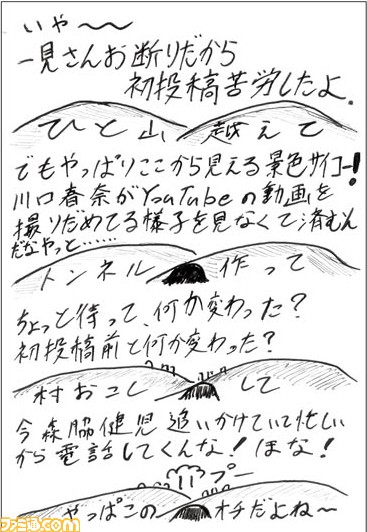 いや〜〜
一見さんお断りだから
初投稿苦労したよ.
ひと山越えて
でもやっぱりここから見える景色サイコー!
川口春奈がYouTubeの動画を
撮りだめてる様子を見なくて済むん
だなやっと……
トンネル作って
ちょっと待って、何か変わった?
初投稿前と何か変わった?
村おこしして
今森脇健児追いかけていて忙しい
から電話してくんな!ほな!
プー
やっぱこのオチだよね〜
ファミ通.com